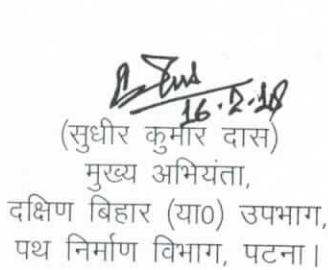 16.2.18
(सुधीर कुमार दास)
मुख्य अभियंता,
दक्षिण बिहार (या0) उपभाग,
पथ निर्माण विभाग, पटना।